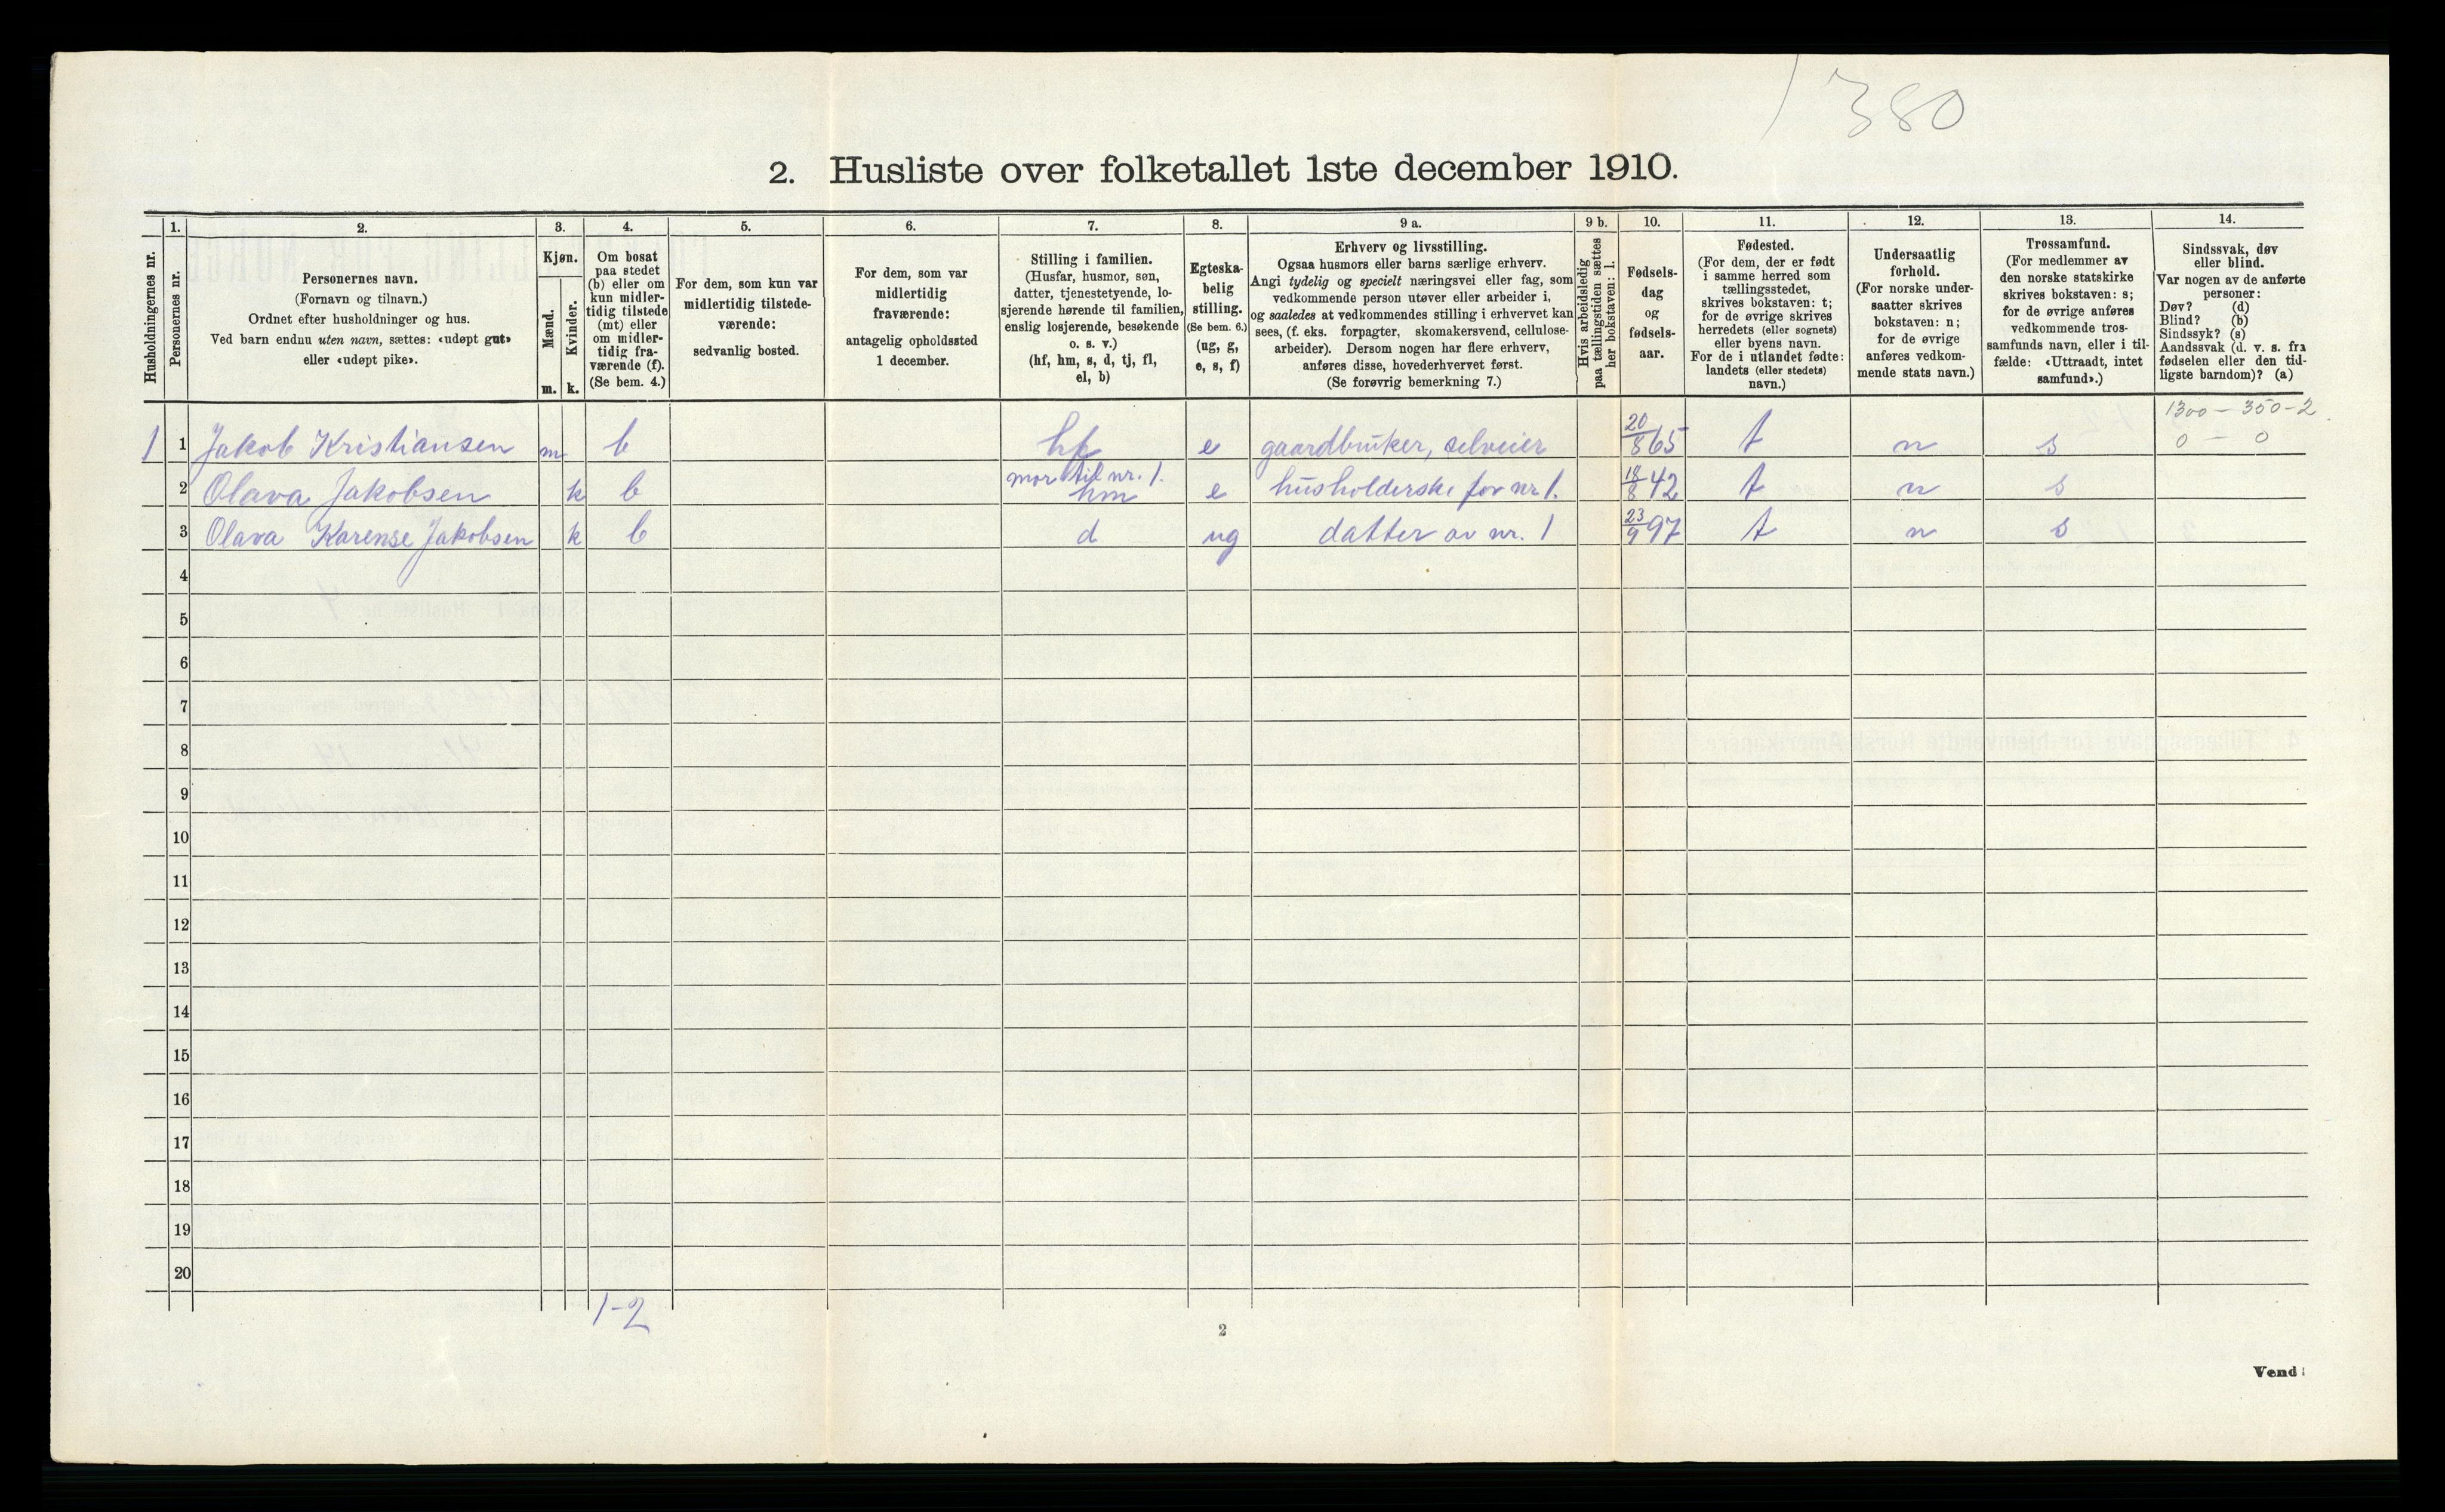 1380
2. Husliste over folketallet 1ste december 1910.
Husholdningernes nr.
1.
Personernes nr.
2.
Personernes navn.
(Fornavn og tilnavn.)
Ordnet efter husholdninger og hus.
Ved barn endnu uten navn, sættes: «udøpt gut»
eller «udøpt pike».
3.
Kjøn.
Mænd.
m.
Kvinder.
k.
4.
Om bosat
paa stedet
(b) eller om
kun midler-
tidig tilstede
(mt) eller
om midler-
tidig fra-
værende (f).
(Se bem. 4.)
5.
For dem, som kun var
midlertidig tilstede-
værende:
sedvanlig bosted.
6.
For dem, som var
midlertidig
fraværende:
antagelig opholdssted
1 december.
7.
Stilling i familien.
(Husfar, husmor, søn,
datter, tjenestetyende, lo-
sjerende hørende til familien,
enslig losjerende, besøkende
o. s. v.)
(hf, hm, s, d, tj, fl,
el, b)
8.
Egteska-
belig
stilling.
(Se bem. 6.)
(ug, g,
e, s, f)
9 a.
Erhverv og livsstilling.
Ogsaa husmors eller barns særlige erhverv.
Angi tydelig og specielt næringsvei eller fag, som
vedkommende person utøver eller arbeider i,
og saaledes at vedkommendes stilling i erhvervet kan
sees, (f. eks. forpagter, skomakersvend, cellulose-
arbeider). Dersom nogen har flere erhverv,
anføres disse, hovederhvervet først.
(Se forøvrig bemerkning 7.)
9 b.
Hvis arbeidsledig
paa tællingstiden sættes
her bokstaven: l.
10.
Fødsels-
dag
og
fødsels-
aar.
11.
Fødested.
(For dem, der er født
i samme herred som
tællingsstedet,
skrives bokstaven: t;
for de øvrige skrives
herredets (eller sognets)
eller byens navn.
For de i utlandet fødte:
landets (eller stedets)
navn.)
12.
Undersaatlig
forhold.
(For norske under-
saatter skrives
bokstaven: n;
for de øvrige
anføres vedkom-
mende stats navn.)
13.
Trossamfund.
(For medlemmer av
den norske statskirke
skrives bokstaven: s;
for de øvrige anføres
vedkommende tros-
samfunds navn, eller i til-
fælde: «Uttraadt, intet
samfund».)
14.
Sindssvak, døv
eller blind.
Var nogen av de anførte
personer:
Døv? (d)
Blind? (b)
Sindssyk? (s)
Aandssvak (d. v. s. fra
fødselen eller den tid-
ligste barndom)? (a)
1300 - 350 - 2
1 1 Jakob Kristiansen m b hf e gaardbruker, selveier 20/8 65 t n s 0 - 0
mor til nr. 1.
2 Olava Jakobsen k b hm e husholderske for nr 1. 18/8 42 t n s
3 Olava Karense Jakobsen k b d ug datter av nr. 1 23/9 97 t n s
4
5
6
7
8
9
10
11
12
13
14
15
16
17
18
19
20
1-2
2
Vend!